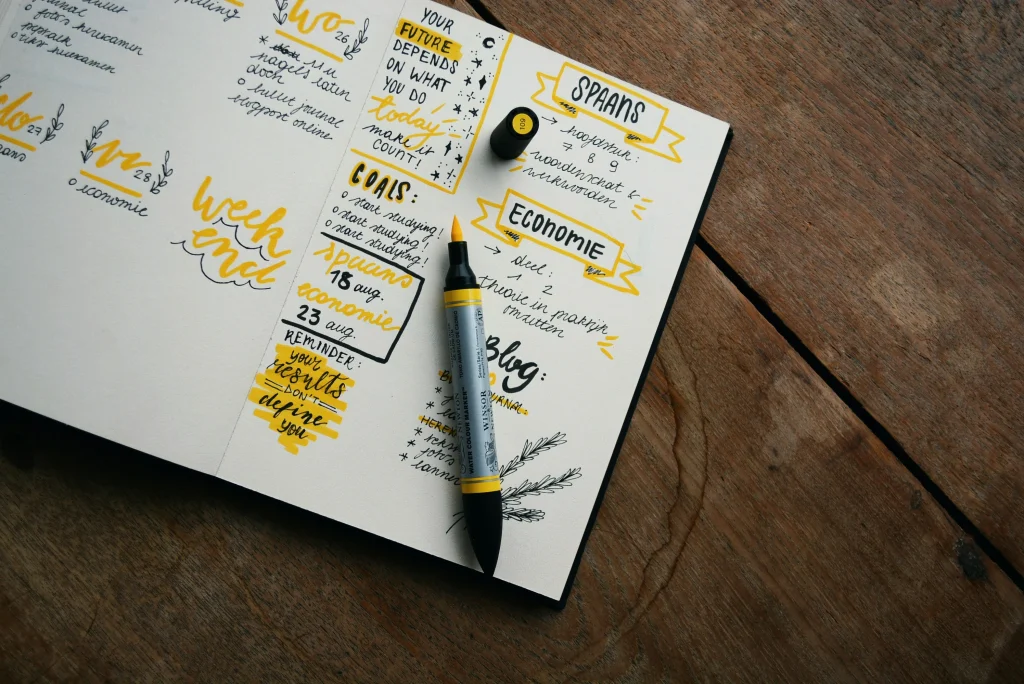 foto's herexamen
herexamen
wo 26
nagels laten
doch
o bullet journal
blogpost online
do 27
vr 28
o economie
week
end
YOUR
FUTURE
DEPENDS
ON WHAT
YOU DO
today
make it
COUNT!
GOALS:
o start studying!
o start studying!
o start studying!
spaans
18 aug.
economie
23 aug.
REMINDER:
your
results
DON'T
define
you
109
SPAANS
→ hoofdstuk:
7 8 9
woordenschat &
werkwoorden
ECONOMIE
→ deel:
1 2
theorie in praktijk
omzetten
Blog:
JOURNAL:
HEREX
foto's
WATER COLOUR MARKER
WINSOR